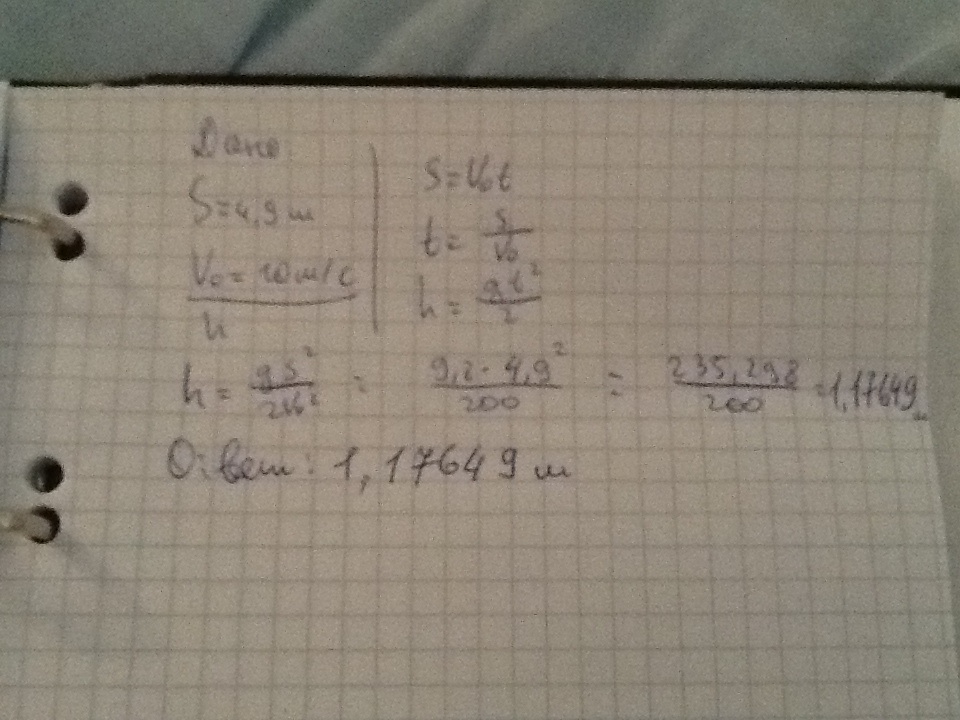 Дано
S = 4,9 м
V₀ = 10 м/с
h
S = V₀t
t = S/V₀
h = gt²/2
h = gS²/2V₀² = 9,8 · 4,9²/200 = 235,298/200 = 1,17649 м
Ответ: 1,17649 м